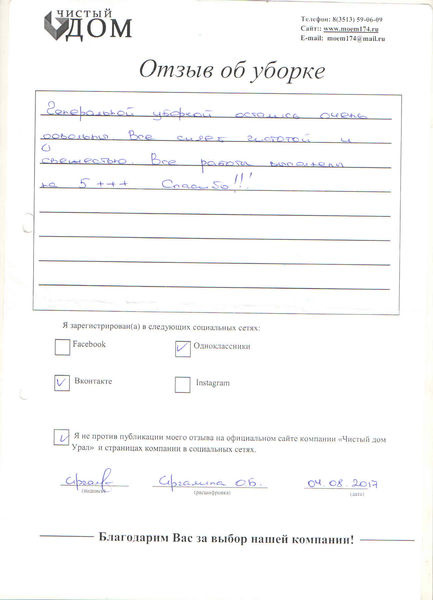 ЧИСТЫЙ
ДОМ
Телефон: 8(3513) 59-06-09
Сайт:: www.moem174.ru
E-mail: moem174@mail.ru
Отзыв об уборке
Генеральной уборкой остались очень
довольны. Все сияет чистотой и
свежестью. Все работы выполнены
на 5+++ Спасибо!!!
Я зарегистрирован(а) в следующих социальных сетях:
Facebook
Одноклассники
Вконтакте
Instagram
Я не против публикации моего отзыва на официальном сайте компании «Чистый дом
Урал» и страницах компании в социальных сетях.
О.Б. 04.08.2017
(подпись) (расшифровка) (дата)
Благодарим Вас за выбор нашей компании!